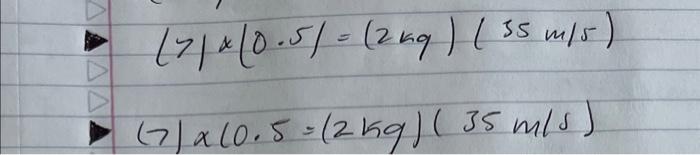 (7) x (0.5) = (2kg) (35 m/s)
(7) x (0.5 = (2kg) (35 m/s)